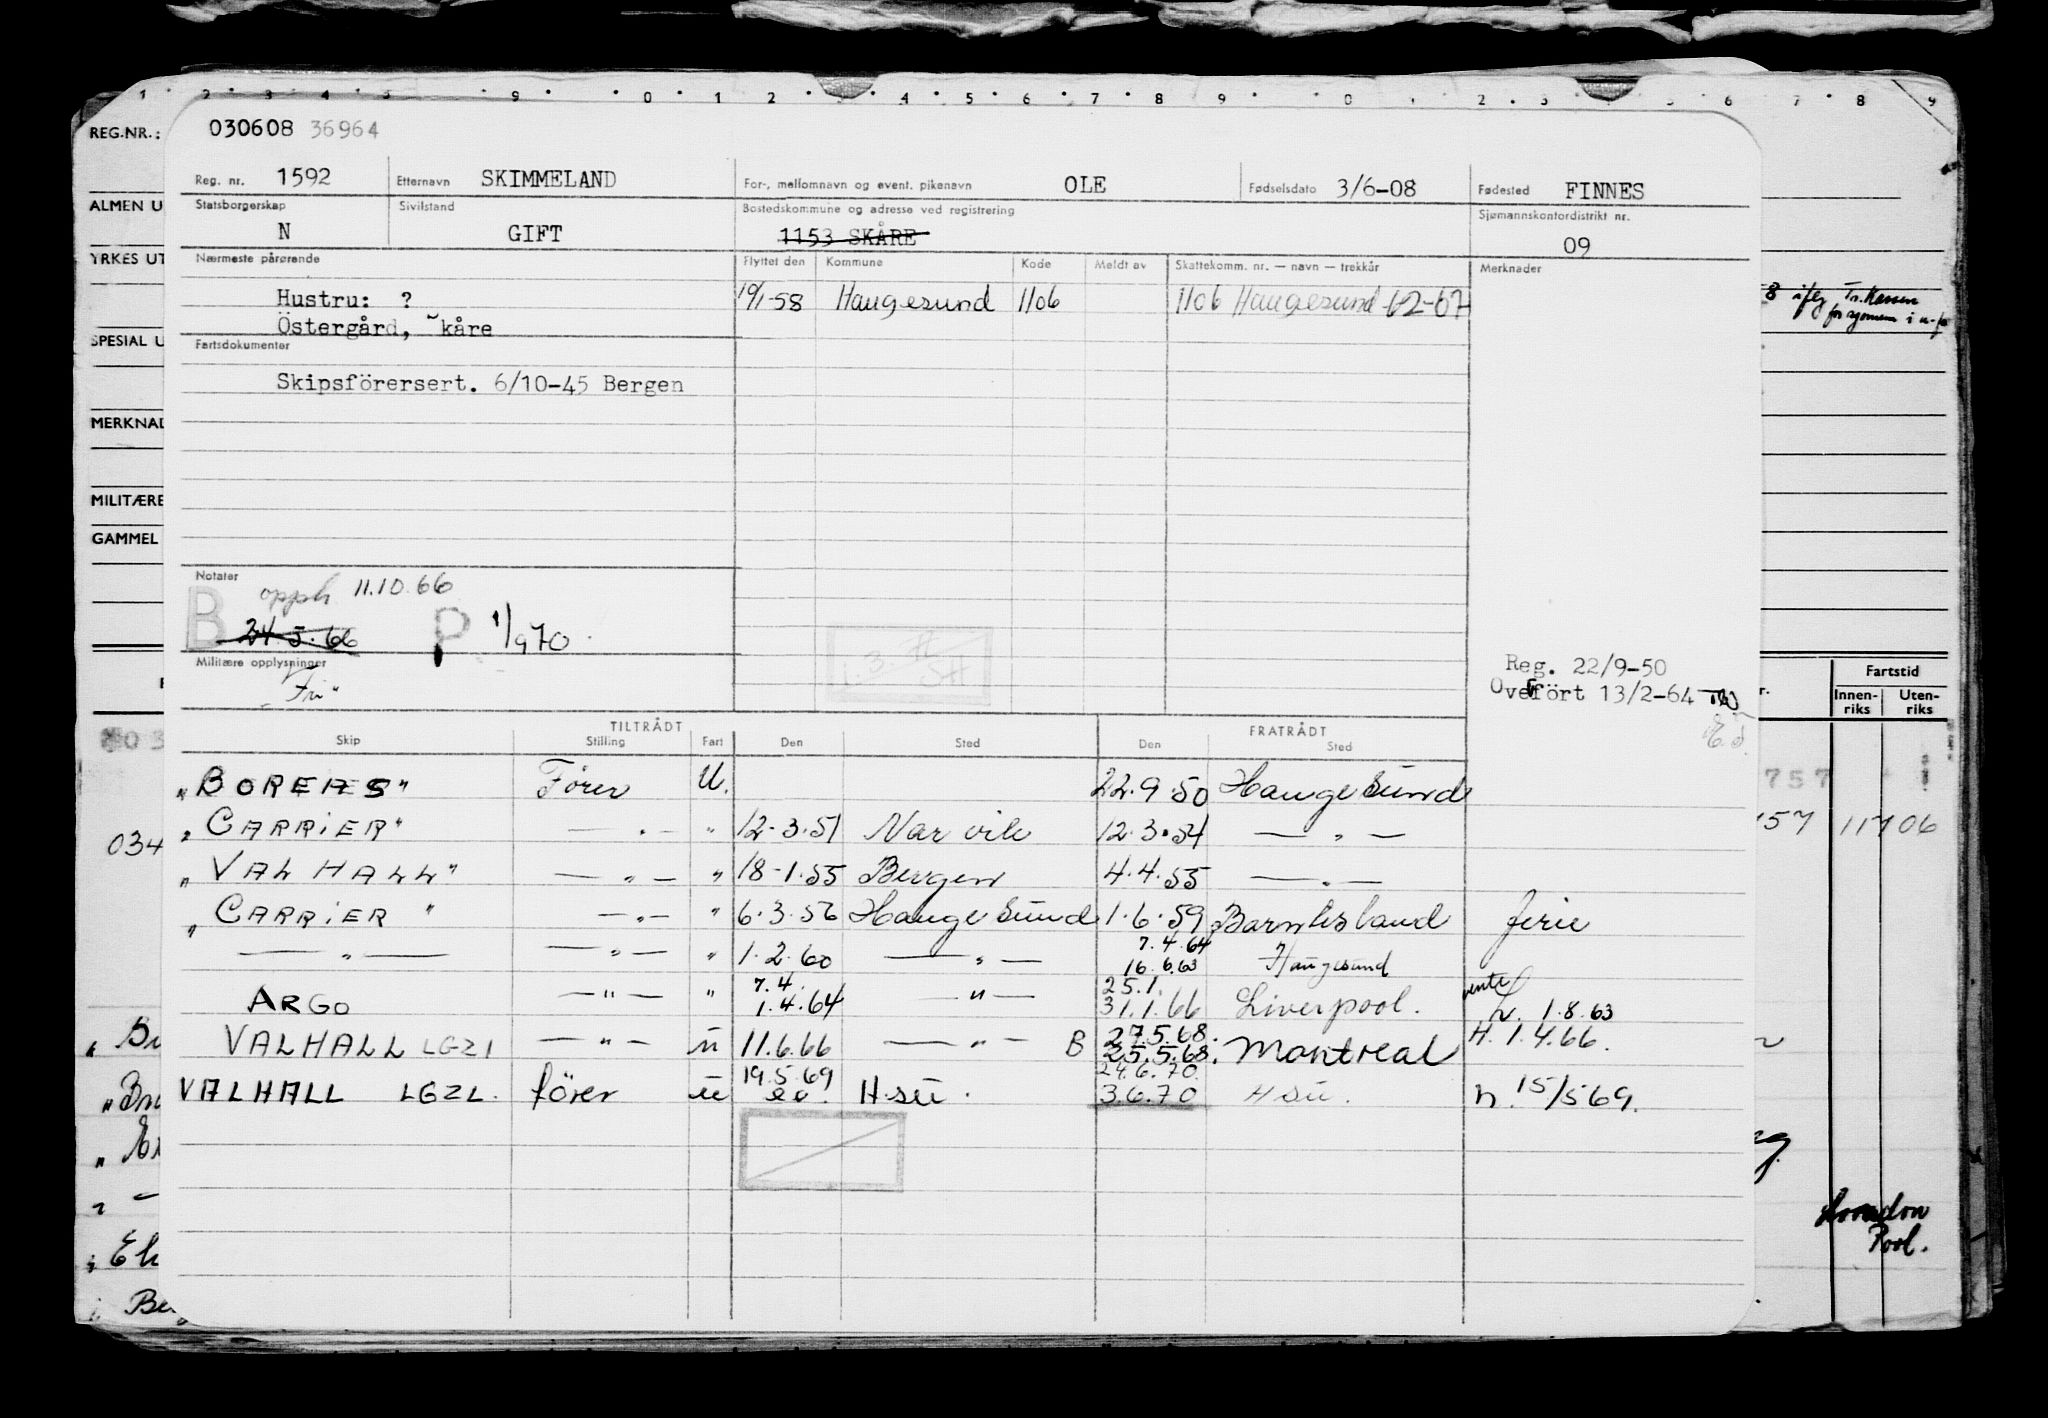 1 2 3 4 5 9 0 1 2 3 4 5 6 7 8 9 0 1 2 3 5 6 7 8 9
REG.NR.:
030608 36964
Reg. nr. 1592 Etternavn SKIMMELAND For-, mellomnavn og event. pikenavn OLE Fødselsdato 3/6-08 Fødested FINNES
ALMEN U
Statsborgerskap N Sivilstand GIFT Bostedskommune og adresse ved registrering 1153 SKÅRE Sjømannskontordistrikt nr. 09
YRKES UT
Nærmeste pårørende Flyttet den Kommune Kode Meldt av Skattekomm. nr. — navn — trekkår Merknader
Hustru: ? 19/1-58 Haugesund 1106 1106 Haugesund 62-67
Östergård, ˘kåre
8 iflg Tr.kassen
for sjømenn i u-f
SPESIAL U
Fartsdokumenter
Skipsförersert. 6/10-45 Bergen
MERKNAD
MILITÆRE
GAMMEL
Notater
B opph 11.10.66
24.5.66 P 1/9 70.
Militære opplysninger
"Fri"
Reg. 22/9-50
Overfört 13/2-64
Fartstid
Innen-riks Uten-riks
TILTRÅDT FRATRÅDT
Skip Stilling Fart Den Sted Den Sted
"BOREAS" Fører U. 22.9.50 Haugesund
757
"CARRIER" — " — " 12-3.51 Narvik 12.3.54 — " —
034
157 11706
"VALHALL" — " — " 18-1.55 Bergen 4.4.55 — " —
"CARRIER" — " — " 6.3.56 Haugesund 1.6.59 ferie
— " — — " — " 1.2.60 — " — 7.4.64
16.6.63 Haugesund
ARGO — " — " 7.4.
1.4.64 — " — 25.1.
31.1.66 Liverpool. vente
h. 1.8.63
VALHALL LGZ1 — " — u 11.6.66 — " — B 27.5.68.
25.5.68. Montreal H. 1.4.66.
VALHALL LGZL. fører u 19.5.69 H.su. 24.6.70.
3.6.70 H su. h. 15/5 69.
London
Pool.